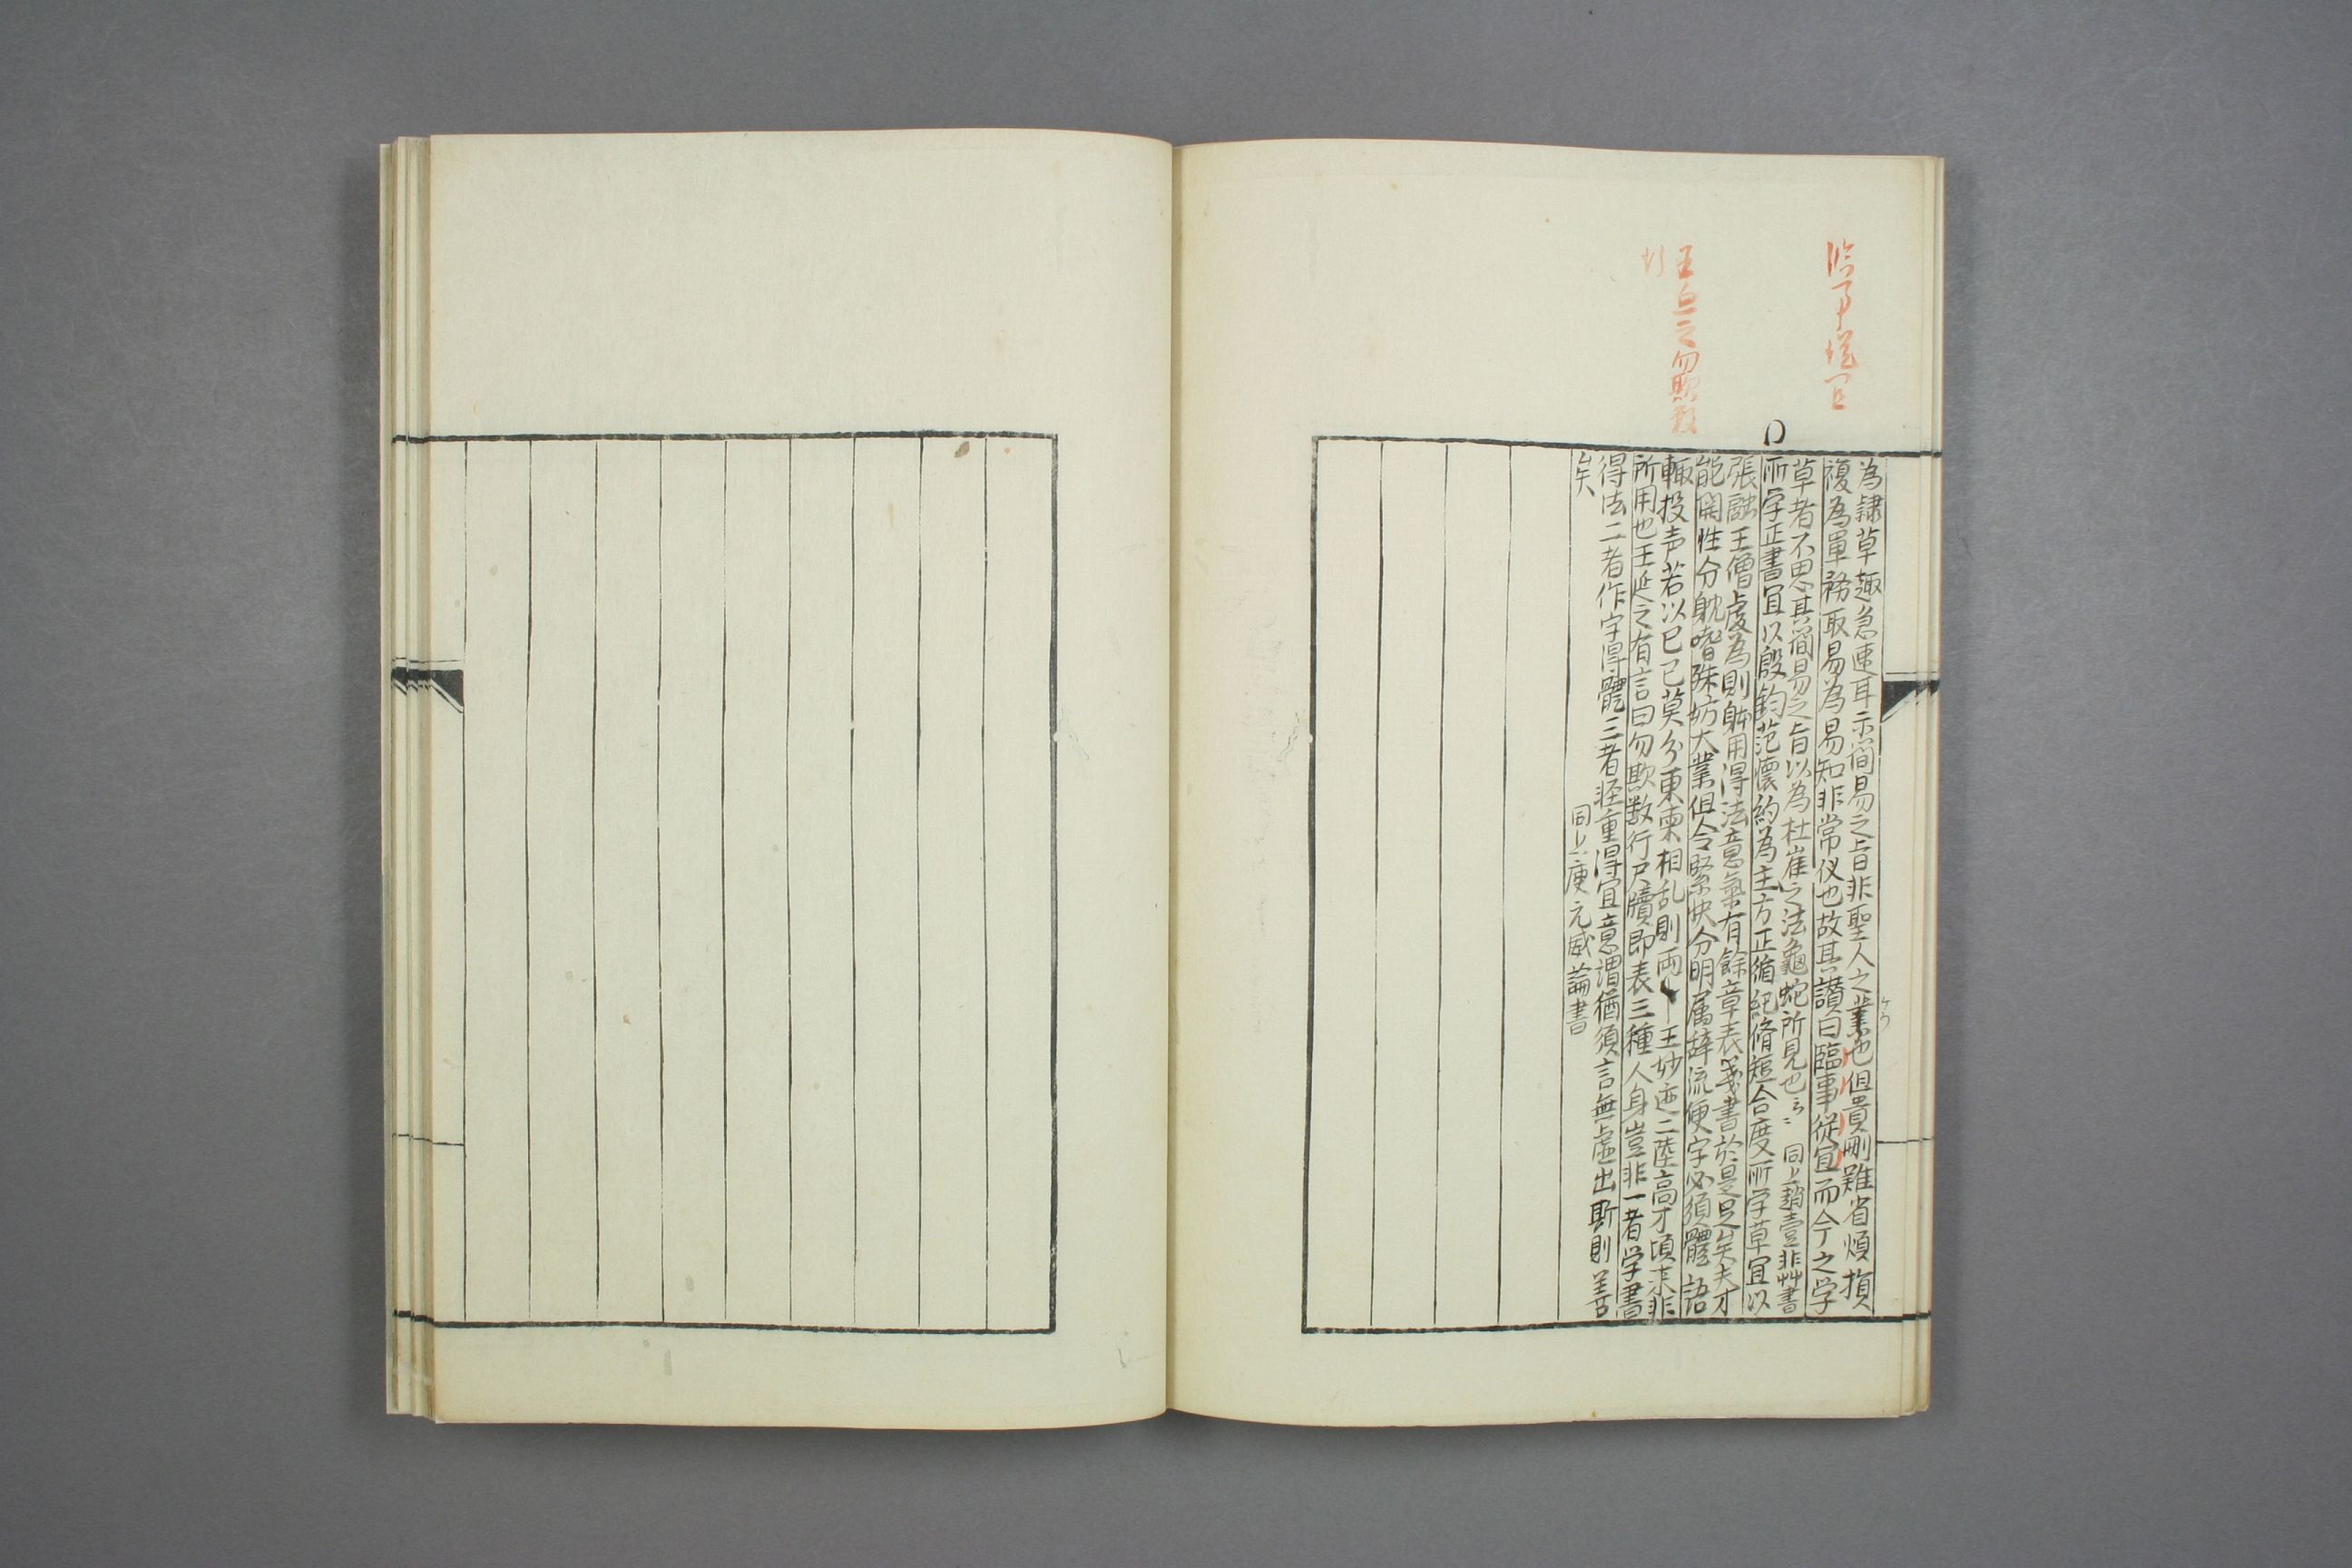 臨事從宜
王延之勿欺数
行
為隷草趣急速耳示簡易之旨非聖人之業也但貴刪難省煩損
複為單務取易為易知非常仪也故其讃曰臨事従宜而今之学
草者不思其簡易之旨以為杜崔之法龜蛇所見也云〻 同上趙壹非艸書
所学正書宜以殷鈞范懐約為主方正循紀脩短合度所学草宜以
張融王僧虔為則躰用得法意氣有餘章表箋書於是足矣夫才
能開性分躭嗜殊妨大業但令緊快分明属辞流便字必須體語
輙投声若以已己莫分東柬相乱則両 王妙迹二陸高才頃来非
所用也王延之有言曰勿欺数行尸牘即表三種人身豈非一者学書
得法二者作字得體三者軽重得宜意謂猶須言無虚出斯則善
矣
同上庾元威論書